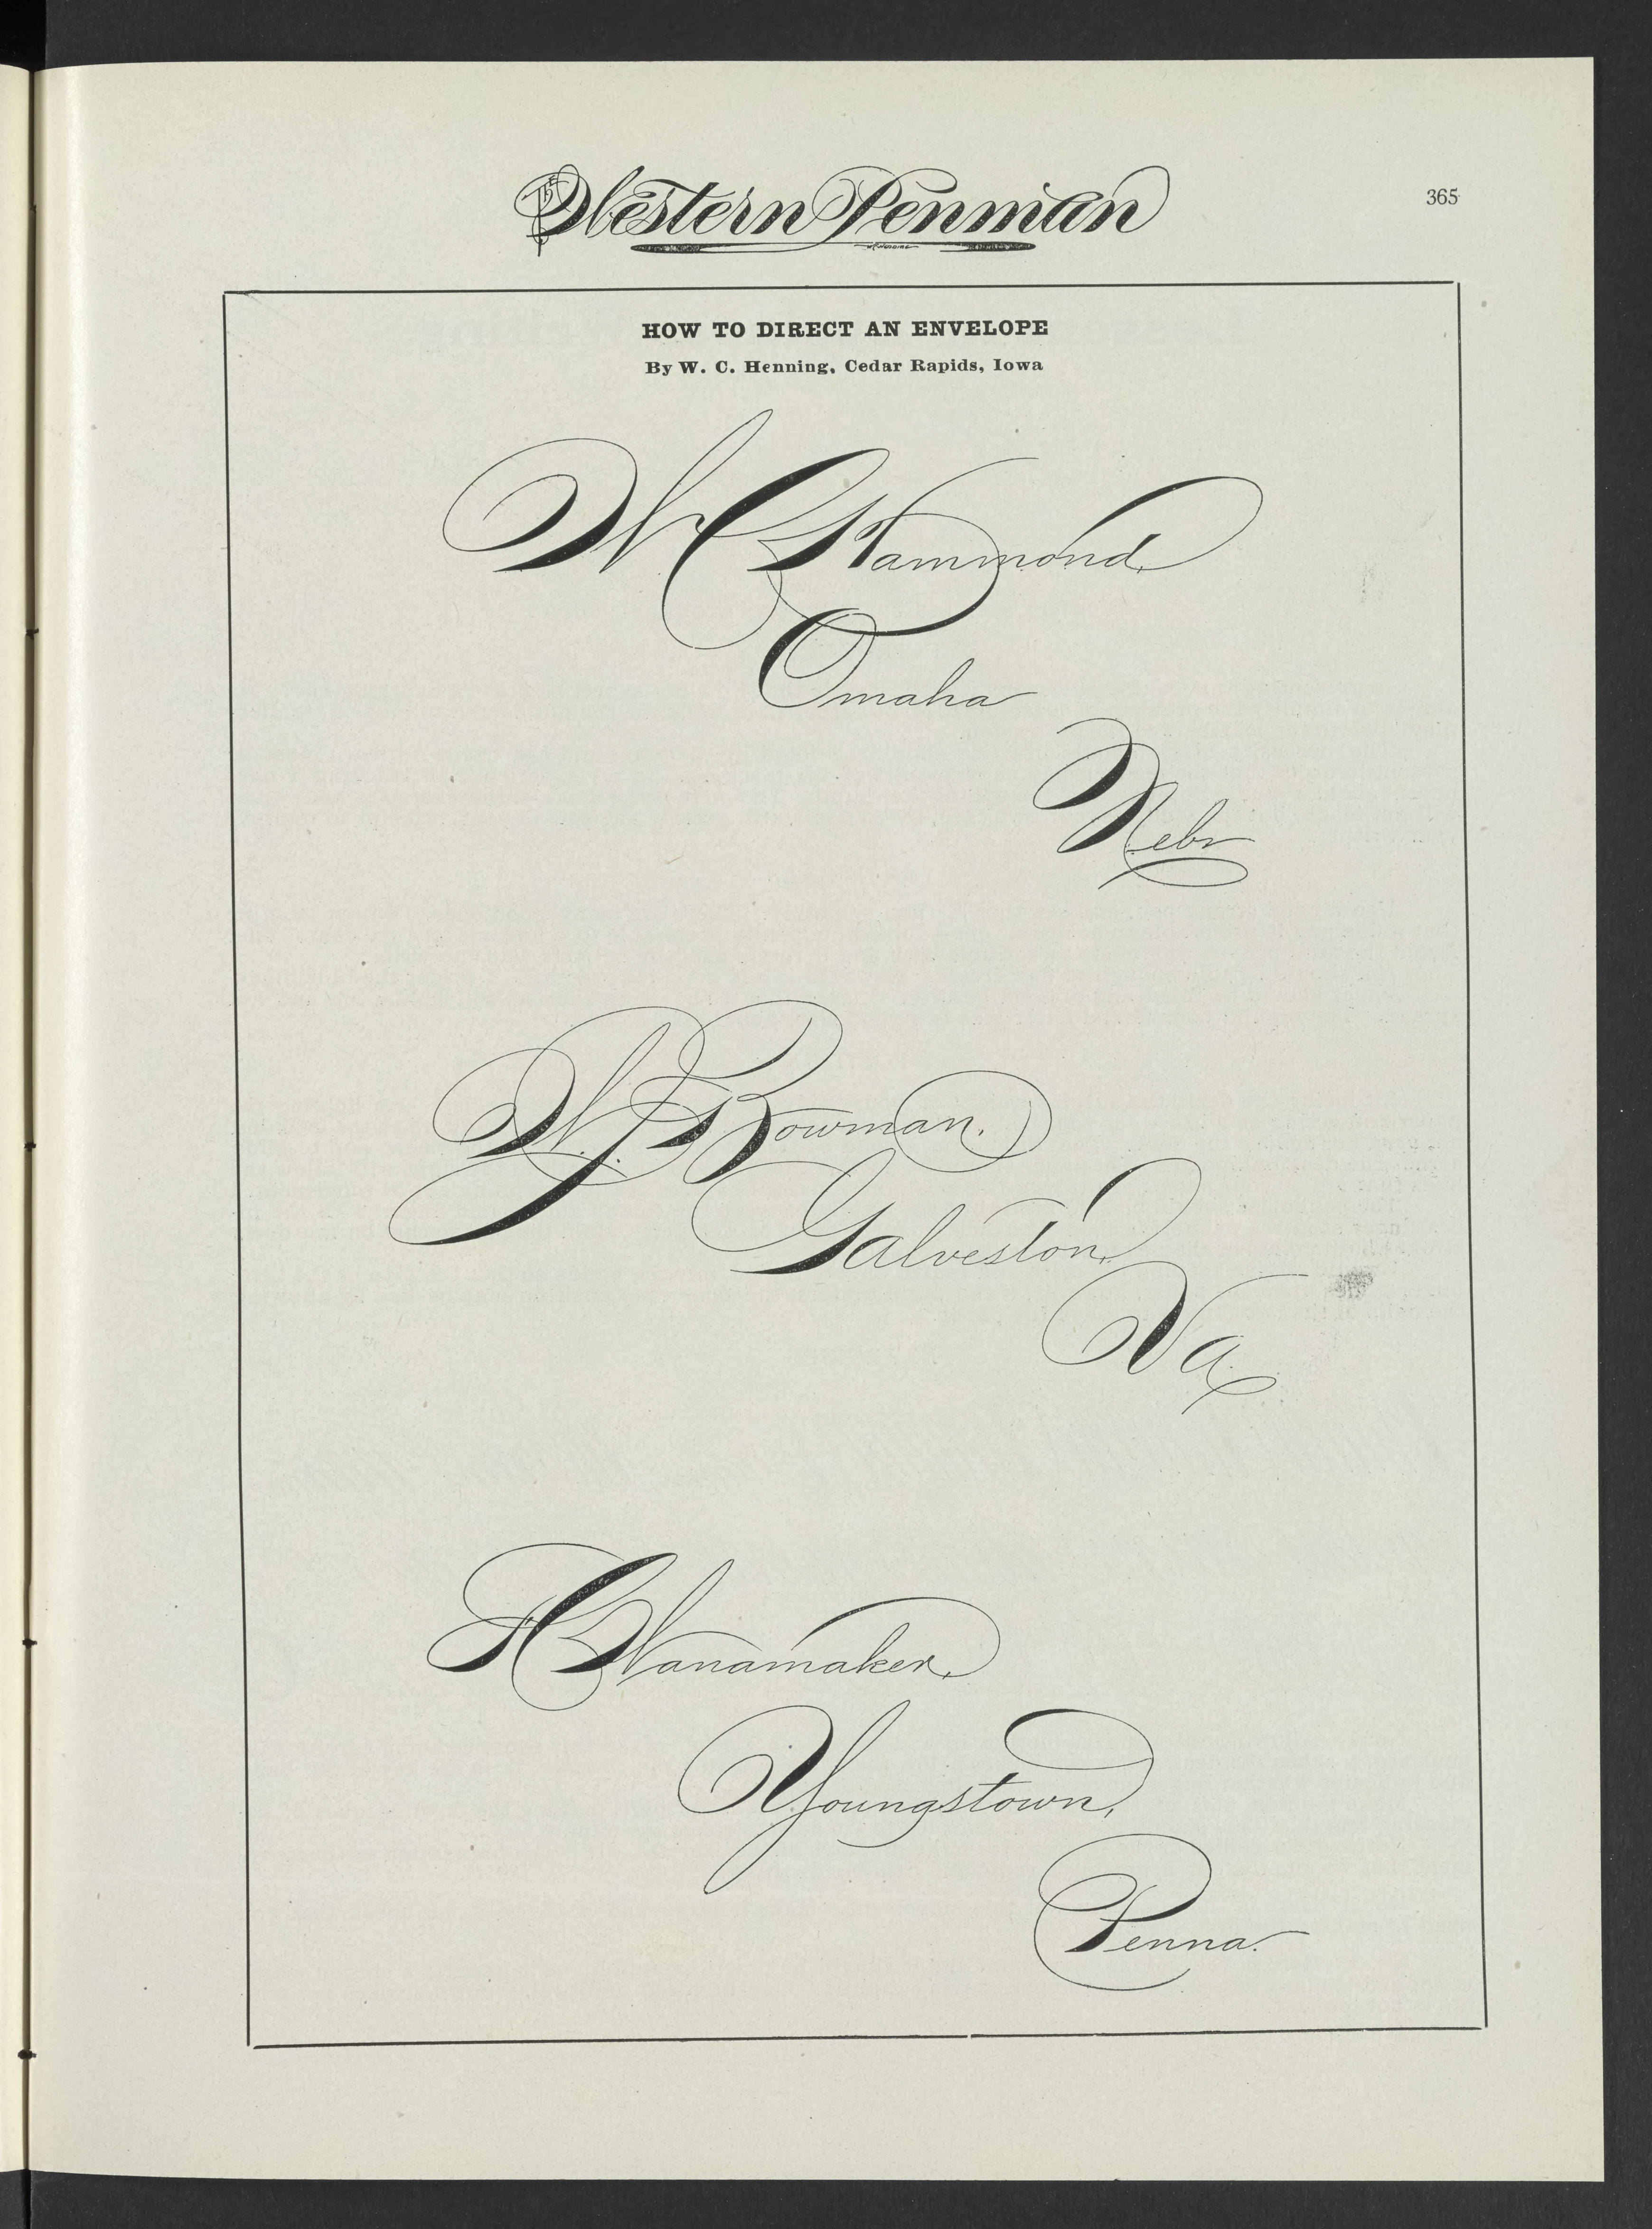 The Western Penman
365
HOW TO DIRECT AN ENVELOPE
By W. C. Henning, Cedar Rapids, Iowa
W C Hammond,
Omaha
Nebr
W. J. Bowman.
Galveston,
Va.
A C Wanamaker,
Youngstown,
Penna.